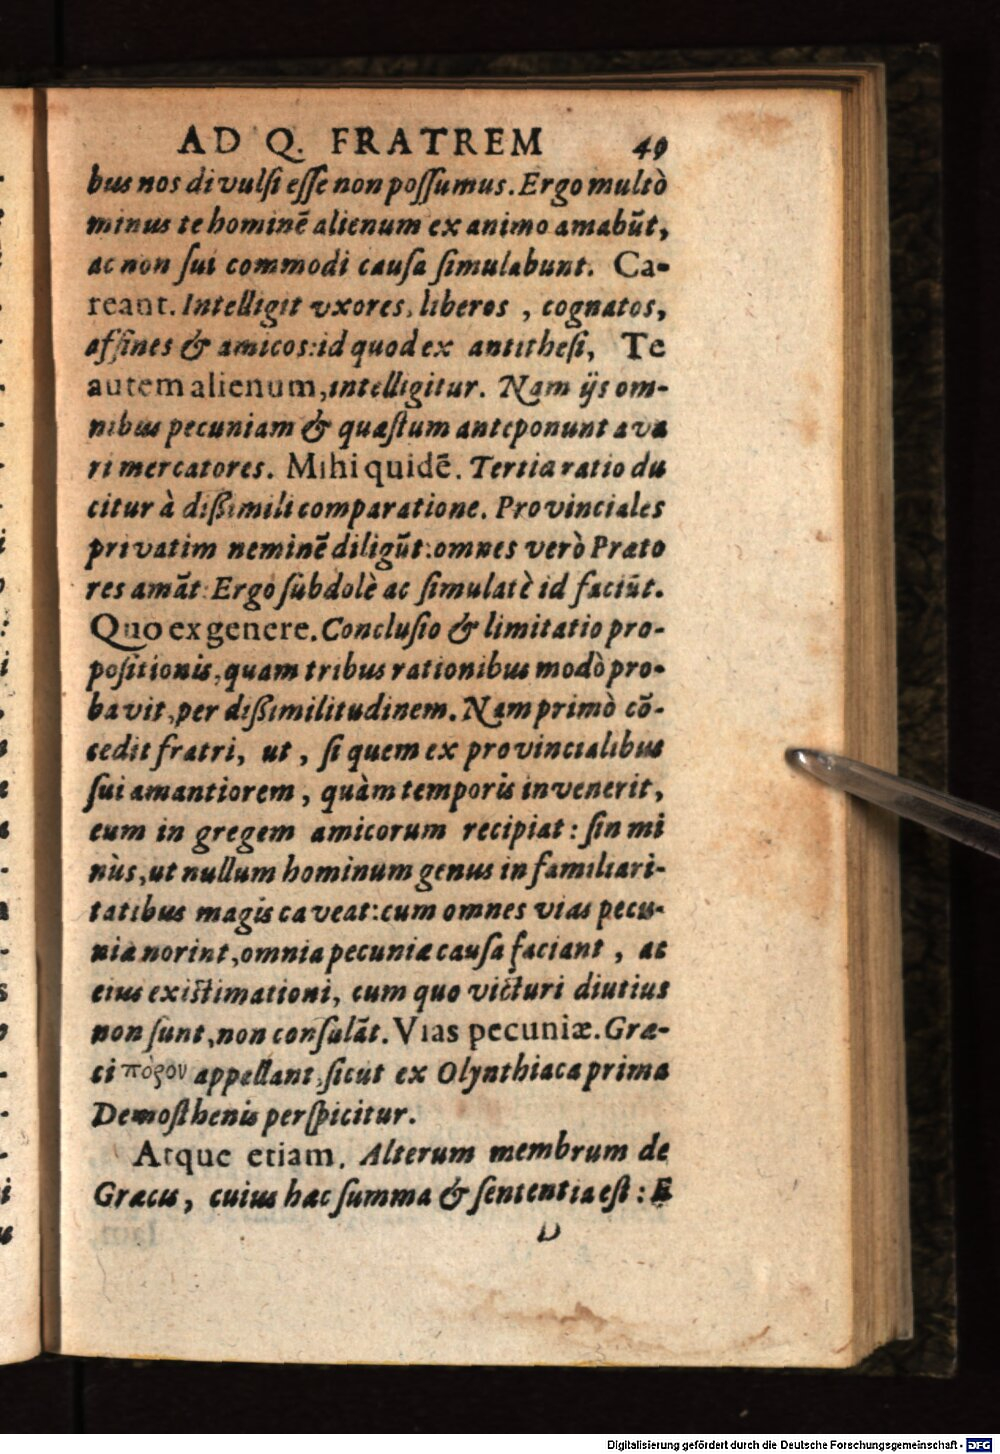 AD Q. FRATREM 49
bus nos divulsi esse non possumus. Ergo multò
minus te hominē alienum ex animo amabūt,
ac non sui commodi causa simulabunt. Ca-
reant. Intelligit vxores, liberos, cognatos,
affines & amicos: id quod ex antithesi, Te
autem alienum, intelligitur. Nam ijs om-
nibus pecuniam & quæstum anteponunt ava
ri mercatores. Mihi quidē. Tertia ratio du
citur à dißimili comparatione. Provinciales
privatim neminē diligūt: omnes verò Præto
res amāt: Ergo subdolè ac simulatè id faciūt.
Quo ex genere. Conclusio & limitatio pro-
positionis, quam tribus rationibus modò pro-
bavit, per dißimilitudinem. Nam primò cō-
cedit fratri, ut, si quem ex provincialibus
sui amantiorem, quàm temporis invenerit,
eum in gregem amicorum recipiat: sin mi
nùs, ut nullum hominum genus in familiari-
tatibus magis caveat: cum omnes vias pecu-
niæ norint, omnia pecuniæ causa faciant, ac
eius existimationi, cum quo victuri diutius
non sunt, non consulāt. Vias pecuniæ. Græ-
ci πόρον appellant, sicut ex Olynthiaca prima
Demosthenis perspicitur.
Atque etiam. Alterum membrum de
Græcis, cuius hæc summa & sententia est: E
D
Digitalisierung gefördert durch die Deutsche Forschungsgemeinschaft - DFG